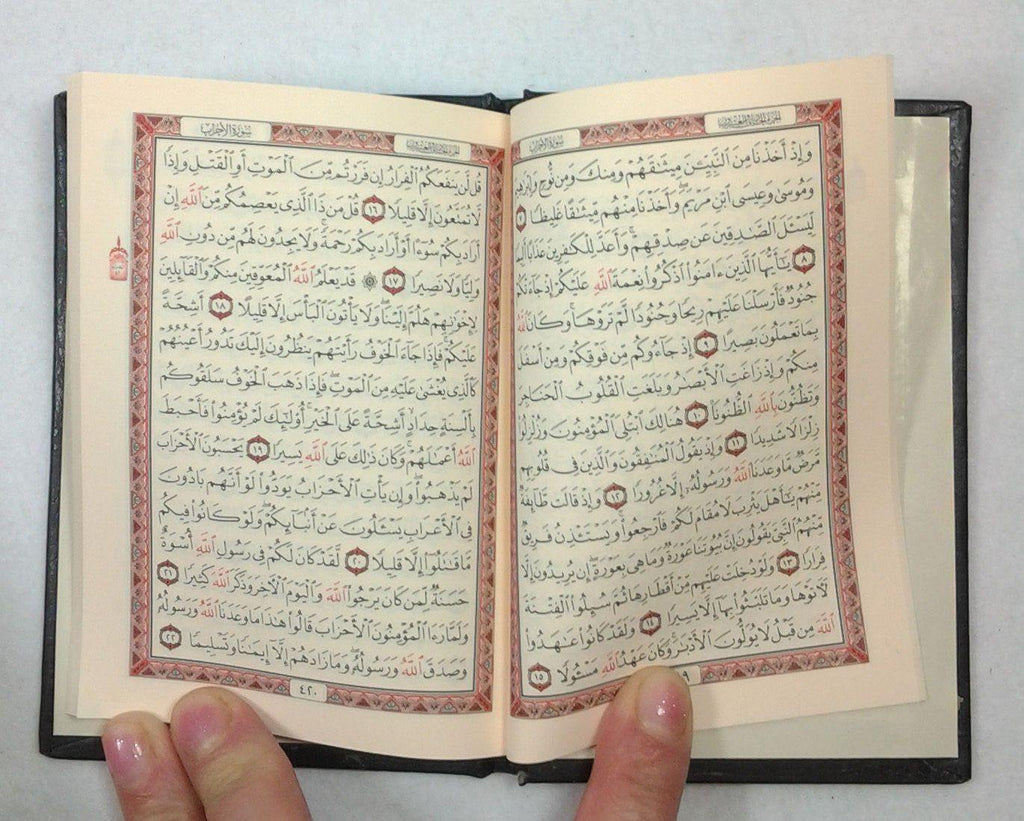 سُورَةُ الأَحْزَابِ
الجُزْءُ الحَادِي وَالعِشْرُونَ
وَإِذْ أَخَذْنَا مِنَ ٱلنَّبِيِّـۧنَ مِيثَٰقَهُمْ وَمِنكَ وَمِن نُّوحٍ وَإِبْرَٰهِيمَ
وَمُوسَىٰ وَعِيسَى ٱبْنِ مَرْيَمَ ۖ وَأَخَذْنَا مِنْهُم مِّيثَٰقًا غَلِيظًا ٧
لِّيَسْـَٔلَ ٱلصَّٰدِقِينَ عَن صِدْقِهِمْ ۚ وَأَعَدَّ لِلْكَٰفِرِينَ عَذَابًا أَلِيمًا
٨ يَٰٓأَيُّهَا ٱلَّذِينَ ءَامَنُوا۟ ٱذْكُرُوا۟ نِعْمَةَ ٱللَّهِ عَلَيْكُمْ إِذْ جَآءَتْكُمْ
جُنُودٌ فَأَرْسَلْنَا عَلَيْهِمْ رِيحًا وَجُنُودًا لَّمْ تَرَوْهَا ۚ وَكَانَ ٱللَّهُ
بِمَا تَعْمَلُونَ بَصِيرًا ٩ إِذْ جَآءُوكُم مِّن فَوْقِكُمْ وَمِنْ أَسْفَلَ
مِنكُمْ وَإِذْ زَاغَتِ ٱلْأَبْصَٰرُ وَبَلَغَتِ ٱلْقُلُوبُ ٱلْحَنَاجِرَ
وَتَظُنُّونَ بِٱللَّهِ ٱلظُّنُونَا۠ ١٠ هُنَالِكَ ٱبْتُلِىَ ٱلْمُؤْمِنُونَ وَزُلْزِلُوا۟
زِلْزَالًا شَدِيدًا ١١ وَإِذْ يَقُولُ ٱلْمُنَٰفِقُونَ وَٱلَّذِينَ فِى قُلُوبِهِم
مَّرَضٌ مَّا وَعَدَنَا ٱللَّهُ وَرَسُولُهُۥٓ إِلَّا غُرُورًا ١٢ وَإِذْ قَالَت طَّآئِفَةٌ
مِّنْهُمْ يَٰٓأَهْلَ يَثْرِبَ لَا مُقَامَ لَكُمْ فَٱرْجِعُوا۟ ۚ وَيَسْتَـْٔذِنُ فَرِيقٌ
مِّنْهُمُ ٱلنَّبِىَّ يَقُولُونَ إِنَّ بُيُوتَنَا عَوْرَةٌ وَمَا هِىَ بِعَوْرَةٍ ۖ إِن يُرِيدُونَ إِلَّا
فِرَارًا ١٣ وَلَوْ دُخِلَتْ عَلَيْهِم مِّنْ أَقْطَارِهَا ثُمَّ سُئِلُوا۟ ٱلْفِتْنَةَ
لَـَٔاتَوْهَا وَمَا تَلَبَّثُوا۟ بِهَآ إِلَّا يَسِيرًا ١٤ وَلَقَدْ كَانُوا۟ عَٰهَدُوا۟
ٱللَّهَ مِن قَبْلُ لَا يُوَلُّونَ ٱلْأَدْبَٰرَ ۚ وَكَانَ عَهْدُ ٱللَّهِ مَسْـُٔولًا ١٥
٩
الجُزْءُ الحَادِي وَالعِشْرُونَ
سُورَةُ الأَحْزَابِ
قُل لَّن يَنفَعَكُمُ ٱلْفِرَارُ إِن فَرَرْتُم مِّنَ ٱلْمَوْتِ أَوِ ٱلْقَتْلِ وَإِذًا
لَّا تُمَتَّعُونَ إِلَّا قَلِيلًا ١٦ قُلْ مَن ذَا ٱلَّذِى يَعْصِمُكُم مِّنَ ٱللَّهِ إِنْ
أَرَادَ بِكُمْ سُوٓءًا أَوْ أَرَادَ بِكُمْ رَحْمَةً ۚ وَلَا يَجِدُونَ لَهُم مِّن دُونِ ٱللَّهِ
وَلِيًّا وَلَا نَصِيرًا ١٧ ۞ قَدْ يَعْلَمُ ٱللَّهُ ٱلْمُعَوِّقِينَ مِنكُمْ وَٱلْقَآئِلِينَ
لِإِخْوَٰنِهِمْ هَلُمَّ إِلَيْنَا ۖ وَلَا يَأْتُونَ ٱلْبَأْسَ إِلَّا قَلِيلًا ١٨ أَشِحَّةً
عَلَيْكُمْ ۖ فَإِذَا جَآءَ ٱلْخَوْفُ رَأَيْتَهُمْ يَنظُرُونَ إِلَيْكَ تَدُورُ أَعْيُنُهُمْ
كَٱلَّذِى يُغْشَىٰ عَلَيْهِ مِنَ ٱلْمَوْتِ ۖ فَإِذَا ذَهَبَ ٱلْخَوْفُ سَلَقُوكُم
بِأَلْسِنَةٍ حِدَادٍ أَشِحَّةً عَلَى ٱلْخَيْرِ ۚ أُو۟لَٰٓئِكَ لَمْ يُؤْمِنُوا۟ فَأَحْبَطَ
ٱللَّهُ أَعْمَٰلَهُمْ ۚ وَكَانَ ذَٰلِكَ عَلَى ٱللَّهِ يَسِيرًا ١٩ يَحْسَبُونَ ٱلْأَحْزَابَ
لَمْ يَذْهَبُوا۟ ۖ وَإِن يَأْتِ ٱلْأَحْزَابُ يَوَدُّوا۟ لَوْ أَنَّهُم بَادُونَ
فِى ٱلْأَعْرَابِ يَسْـَٔلُونَ عَنْ أَنۢبَآئِكُمْ ۖ وَلَوْ كَانُوا۟ فِيكُم
مَّا قَٰتَلُوٓا۟ إِلَّا قَلِيلًا ٢٠ لَّقَدْ كَانَ لَكُمْ فِى رَسُولِ ٱللَّهِ أُسْوَةٌ
حَسَنَةٌ لِّمَن كَانَ يَرْجُوا۟ ٱللَّهَ وَٱلْيَوْمَ ٱلْـَٔاخِرَ وَذَكَرَ ٱللَّهَ كَثِيرًا ٢١
وَلَمَّا رَءَا ٱلْمُؤْمِنُونَ ٱلْأَحْزَابَ قَالُوا۟ هَٰذَا مَا وَعَدَنَا ٱللَّهُ وَرَسُولُهُۥ
وَصَدَقَ ٱللَّهُ وَرَسُولُهُۥ ۚ وَمَا زَادَهُمْ إِلَّآ إِيمَٰنًا وَتَسْلِيمًا ٢٢
٤٢٠